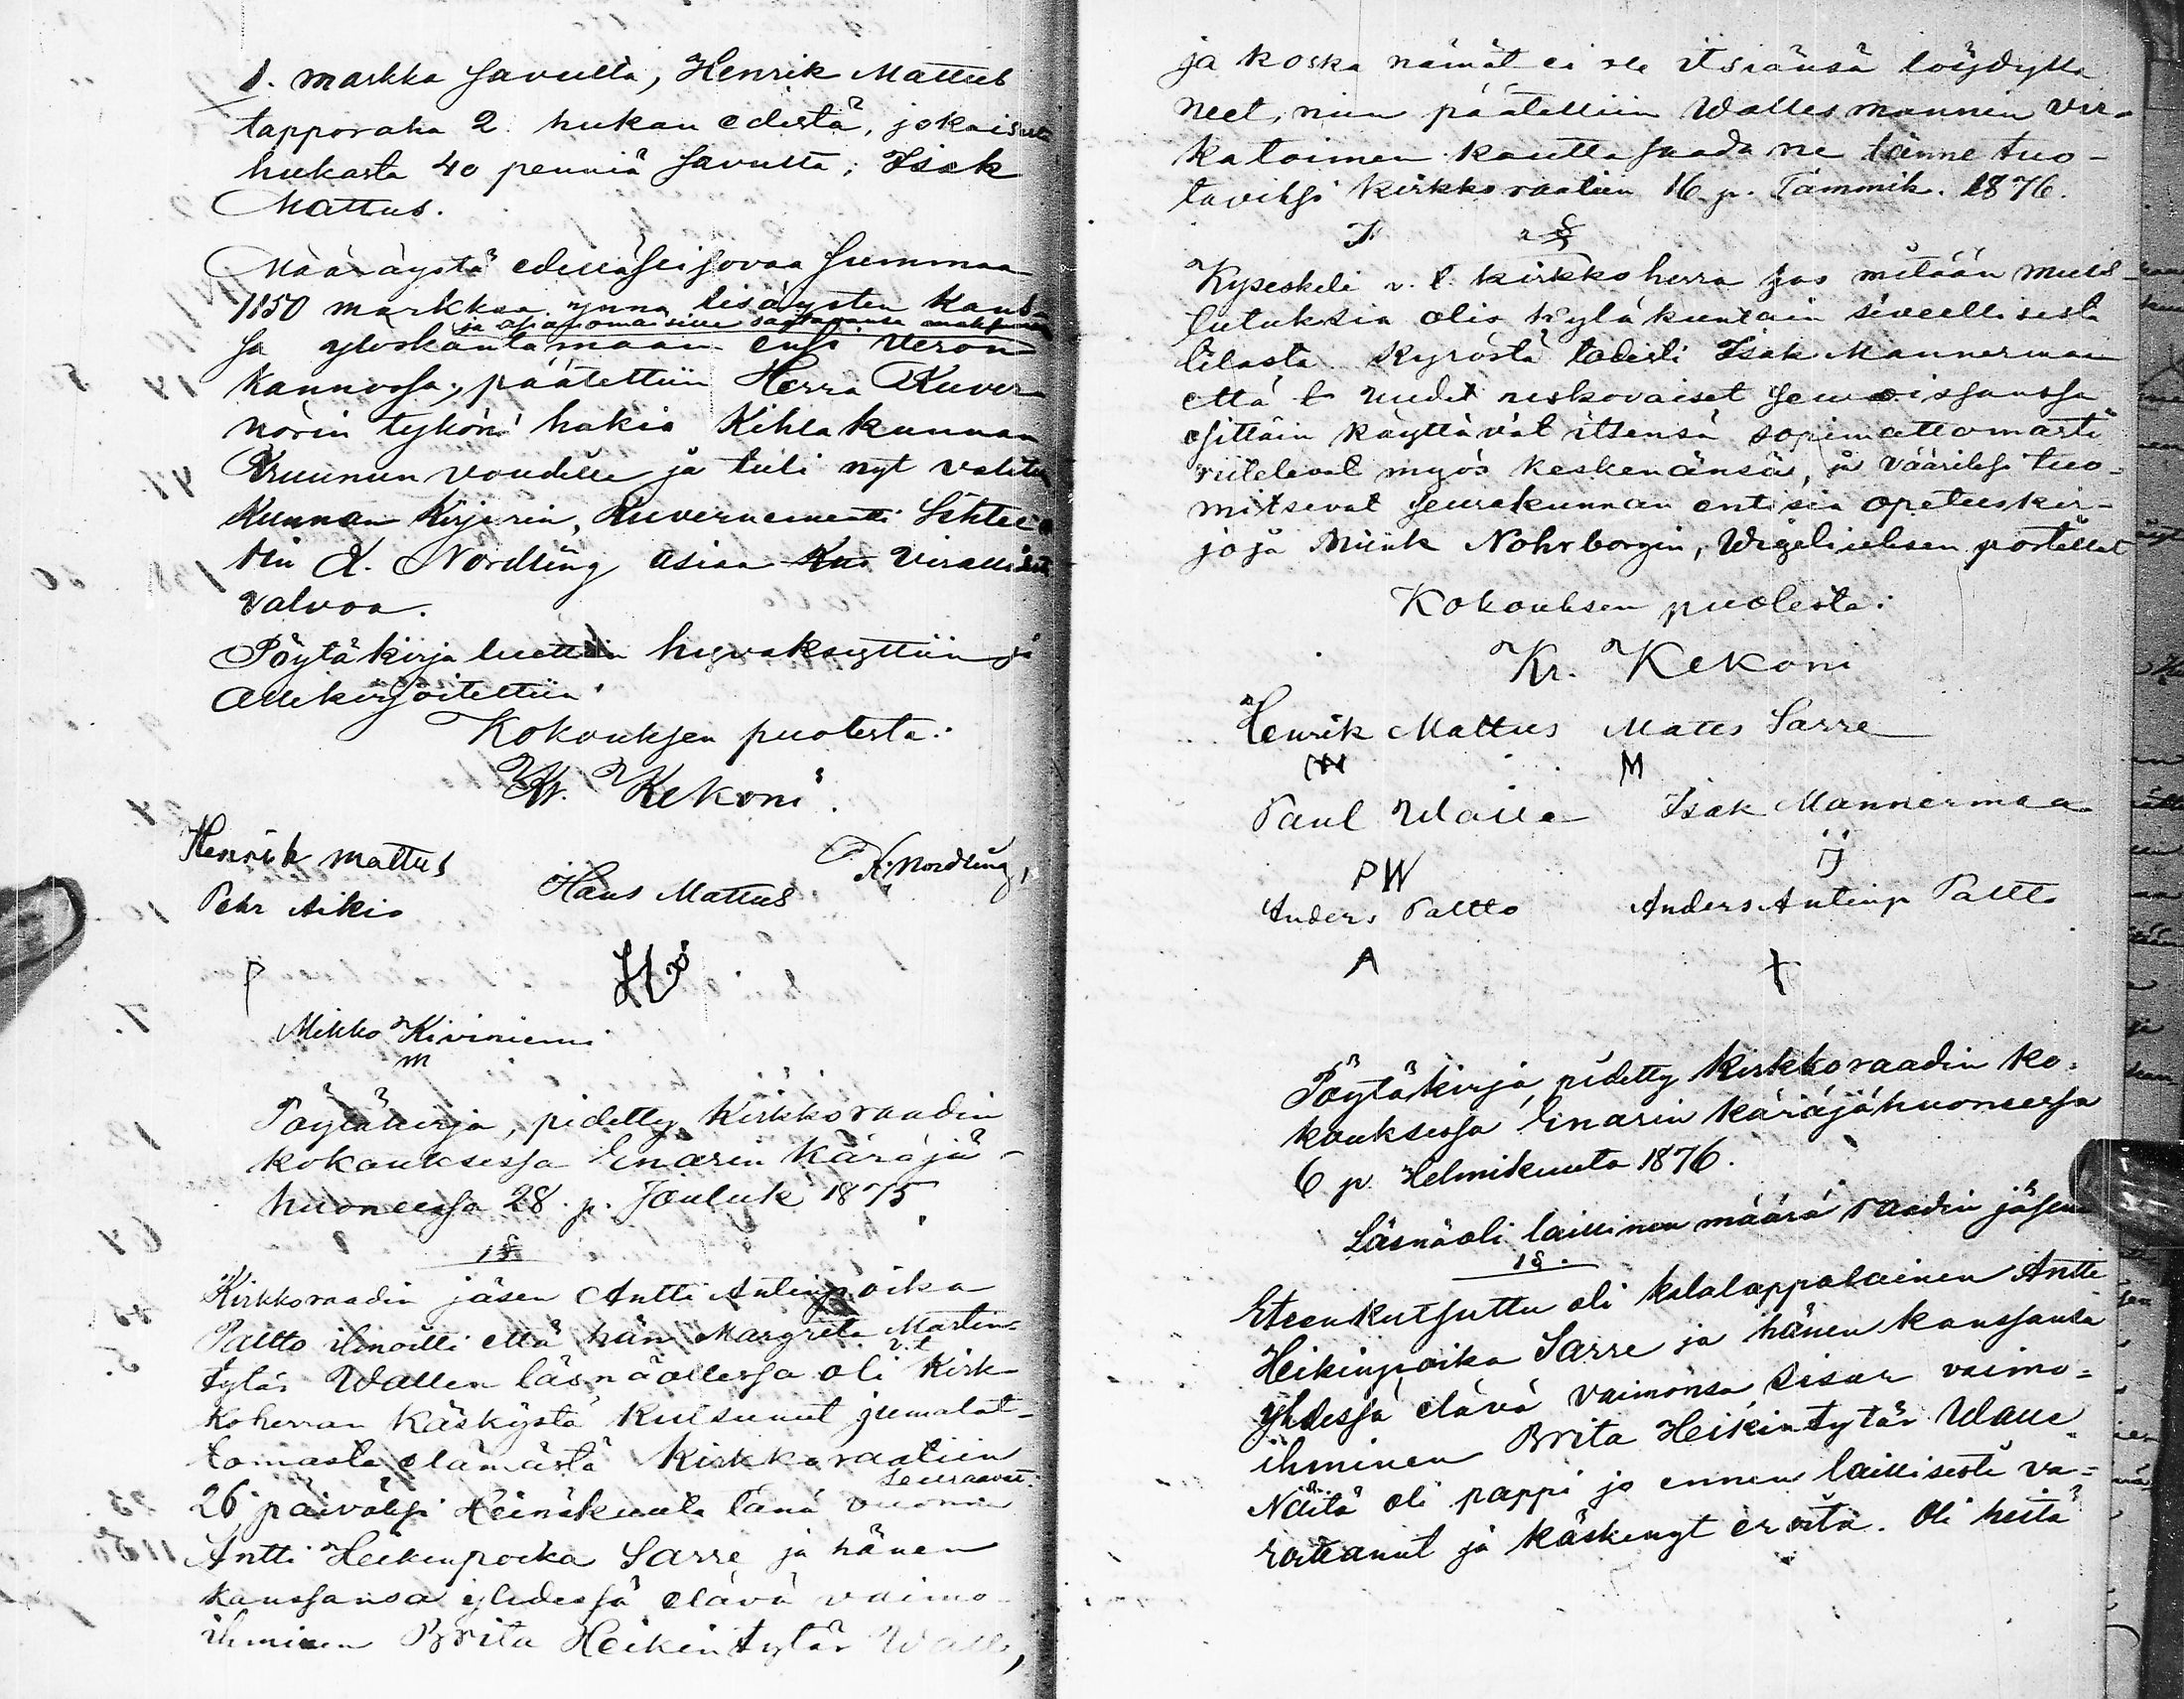 1. markka savulta, Henrik Mattus
tapporaha 2 hukan edestä, jokaisesta
hukasta 40 penniä savulta; Isak
Mattus.
Määräystä edelläseisovaa summaa
1150 markkaa ynna lisäysten kans-
ja asianomaisille
sa yloskantamaan ensi veron
kannossa, päätettiin Herra Kuver
nörin tykönä hakia Kihlakunnan
Kruunun voudille ja tuli nyt valitu
Kunnan Kirjurin, Kuvernementti Sihtee
rin K. Nordling asiaa virallisesti
valvoa.
Pöytäkirja luettiin hyväksyttiin ja
allekirjoitettiin
Kokouksen puolesta:
Kr. Kekoni.
Henrik Mattus
K. Nordling,
Pehr Aikio
Hans Mattus
P
Mikko Kiviniemi
m
Pöytäkirja, pidetty Kirkkoraadin
kokouksessa Enarin Käräjä-
huoneessa 28. p. Jouluk 1875.
1§
Kirkkoraadin jäsen Antti Antinpoika
Paltto ilmoitti että hän Margreta Martin-
v.t
tytär Wallen läsnäollessa oli Kirk-
koherran Käskystä kutsunut jumalat-
tomasta elämästä Kirkkoraatiin
seuraavat:
26 päiväksi Heinäkuuta tänä vuonna
Antti Heikinpoika Sarre ja hänen
kanssansa yhdessä elävä vaimo-
ihminen Brita Heikintytär Walle,
ja koska nämät ei ole itsiänsä löydyttä
neet, niin päätettiin Wallesmannin vir-
katoimen kautta saada ne tänne tuo-
taviksi kirkkoraatiin 16 p. Tammik. 1876.
2 §
Kyseskeli v. t. kirkkoherra jos mitään muis-
tutuksia olis kyläkuntain siveellisestä
tilasta. Kyröstä todisti Isak Mannermaa
että uudet uskovaiset seuroissansa
osittain käyttävät itsensä sopimattomasti
riitelevät myös keskenänsä, ja vääriksi tuo-
mitsevat seurakunnan entisiä opetuskir-
joja Niink Nohrborgin, Wegeliuksen postillat
Kokouksen puolesta:
Kr. Kekoni
Henrik Mattus Matts Sarre
M
Paul Walle Isak Mannermaa
PW IJ
Anders Paltto Anders Antinp Paltto
A
Pöytäkirja, pidetty Kirkkoraadin ko-
kouksessa Enarin käräjähuoneessa
6 p. Helmikuuta 1876.
Läsnäoli laillinen määrä raadin jäseni
1§.
Eteenkutsuttu oli kalalappalainen Antti
Heikinpoika Sarre ja hänen kanssansa
yhdessä elävä vaimonsa sisar vaimo-
ihminen Brita Heikintytär Walle
Näitä oli pappi jo ennen laillisesti va-
roittanut ja käskenyt erota. Oli heitä